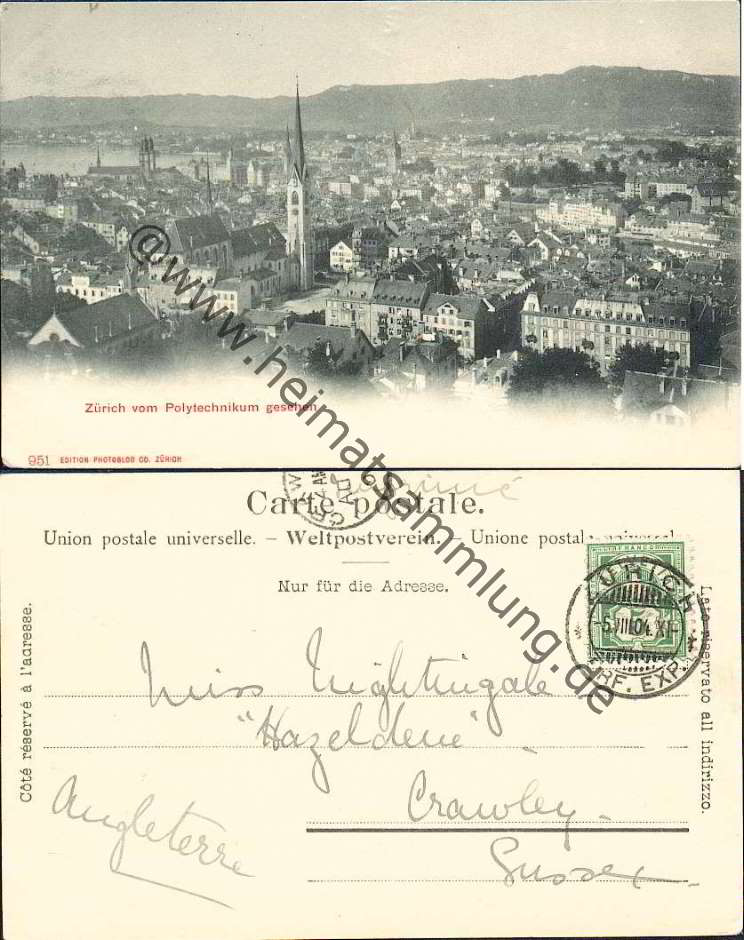 Zürich vom Polytechnikum gesehen.
951 EDITION PHOTOGLOB CO. ZÜRICH
@www.heimatsammlung.de
Imprimé
Carte postale.
Union postale universelle. – Weltpostverein. – Unione postale universal
Nur für die Adresse.
FRANCO
ZÜRICH
-5.VIII.04. XI-
BRF. EXP.
CRAWLEY
AU
Côté réservé à l'adresse.
Lato riservato all indirizzo.
Miss Nightingale
"Hazeldene"
Crawley.
Sussex
Angleterre